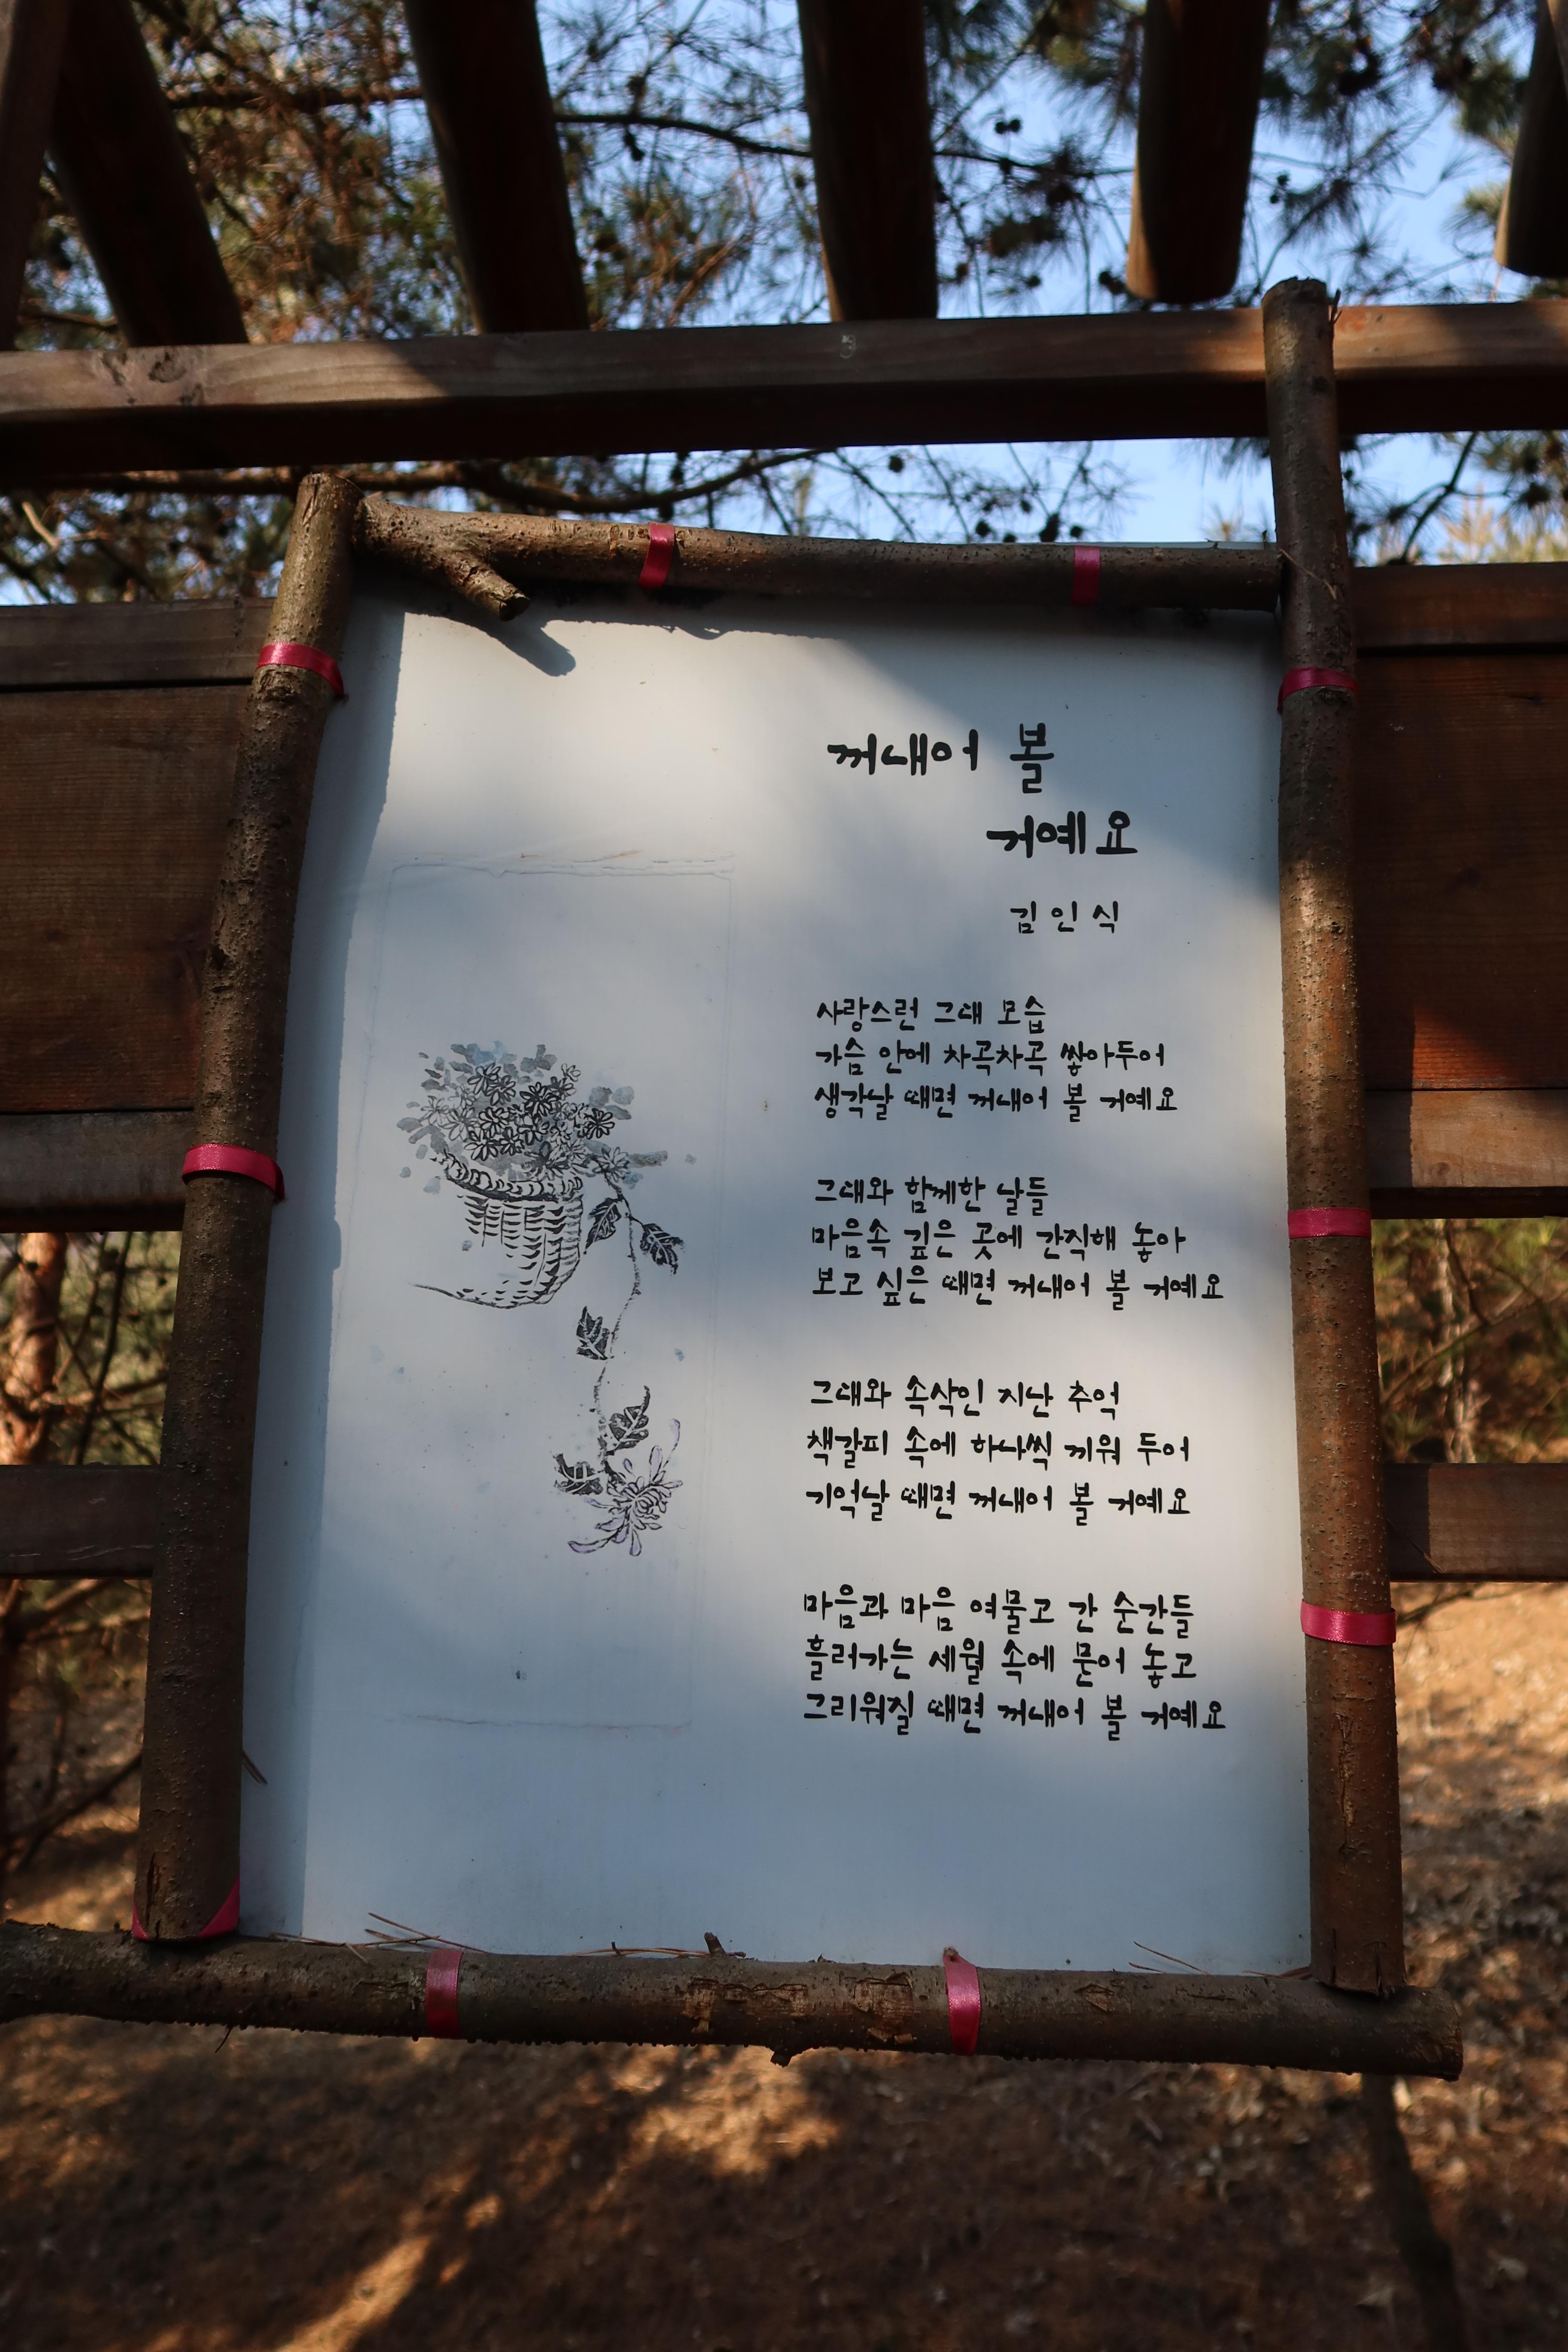 꺼내어 볼
거예요
김인식
사랑스런 그대 모습
가슴 안에 차곡차곡 쌓아두어
생각날 때면 꺼내어 볼 거예요
그대와 함께한 날들
마음속 깊은 곳에 간직해 놓아
보고 싶은 때면 꺼내어 볼 거예요
그대와 속삭인 지난 추억
책갈피 속에 하나씩 끼워 두어
기억날 때면 꺼내어 볼 거예요
마음과 마음 여물고 간 순간들
흘러가는 세월 속에 묻어 놓고
그리워질 때면 꺼내어 볼 거예요